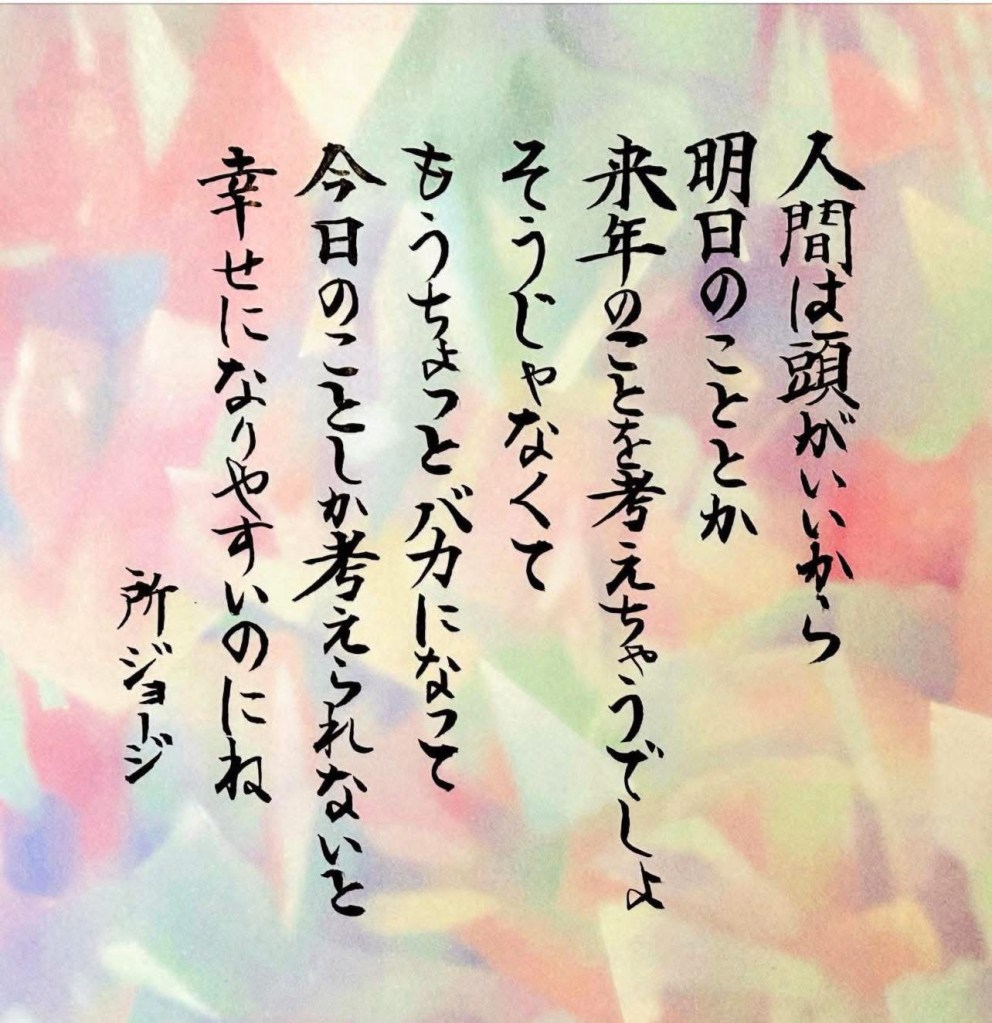 人間は頭がいいから
明日のこととか
来年のことを考えちゃうでしょ
そうじゃなくて
もうちょっとバカになって
今日のことしか考えられないと
幸せになりやすいのにね
所ジョージ